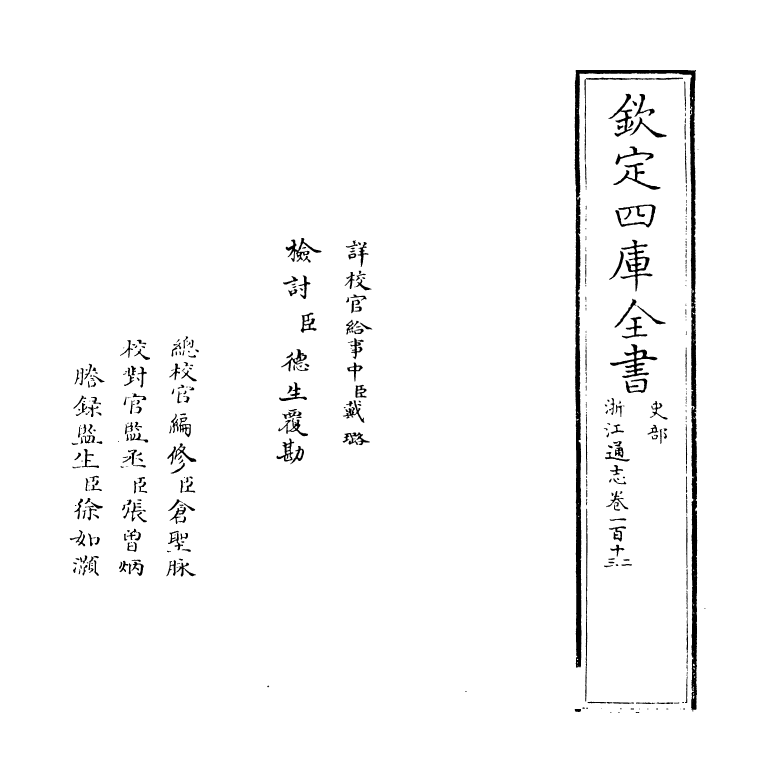 欽定四庫全書
史部
浙江通志卷一百十二三
詳校官給事中臣戴璐
檢討臣德生覆勘
總校官編修臣倉聖脉
校對官監丞臣張曾炳
謄錄監生臣徐如灝